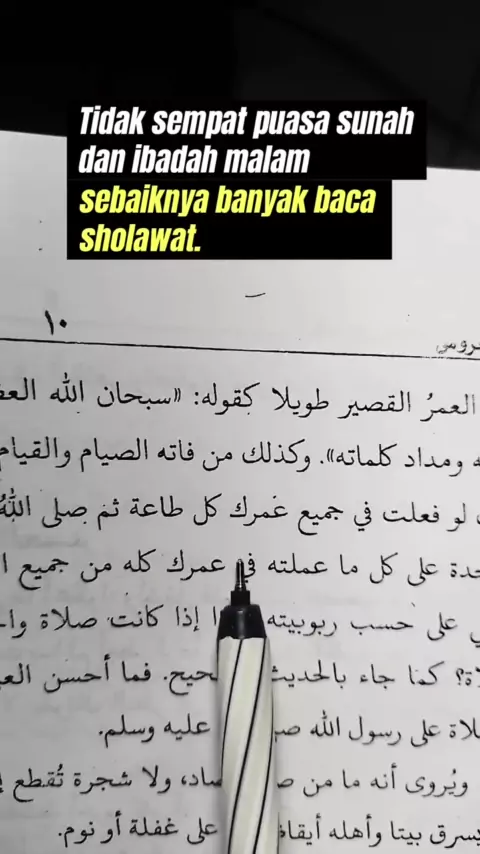 Tidak sempat puasa sunah
dan ibadah malam
sebaiknya banyak baca
sholawat.
١٠
العمرُ القصير طويلا كقوله: «سبحان الله
ومداد كلماته». وكذلك من فاته الصيام والقيام
لو فعلت في جميع عمرك كل طاعة ثم صلى اللهُ
على كل ما عملته في عمرك كله من جميع
على حسب ربوبيته إذا كانت صلاة
كما جاء بالحديث فما أحسن
على رسول الله عليه وسلم.
ويُروى أنه ما من ولا شجرة تُقطع
يسرق بيتا وأهله على غفلة أو نوم.